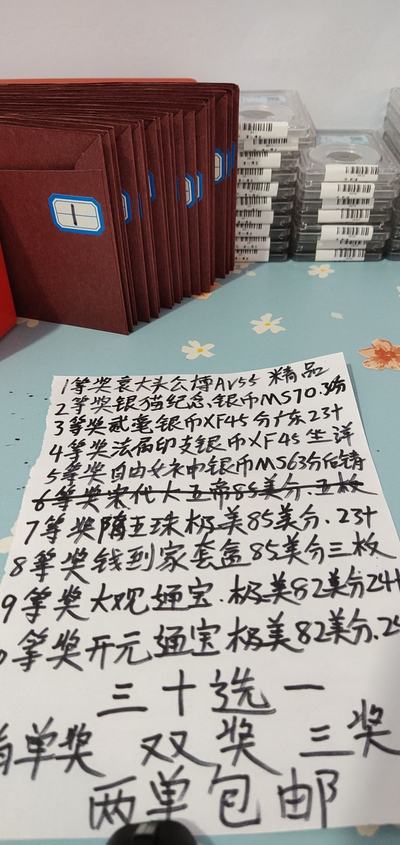 1
1等奖袁大头公博AV55 精品
2等奖银猫纪念银币MS70.3份
3等奖贰毫银币XF45分广东23个
4等奖法属印支银币XF45坐洋
5等奖自由女神银币MS63分后铸
6等奖宋代大五帝85美分.五枚
7等奖隋五珠极美85美分.23个
8等奖钱到家套盒85美分三枚
9等奖大观通宝.极美82美分24
等奖开元通宝极美82美分.2
三十选一
单奖 双奖 三奖
两单包邮